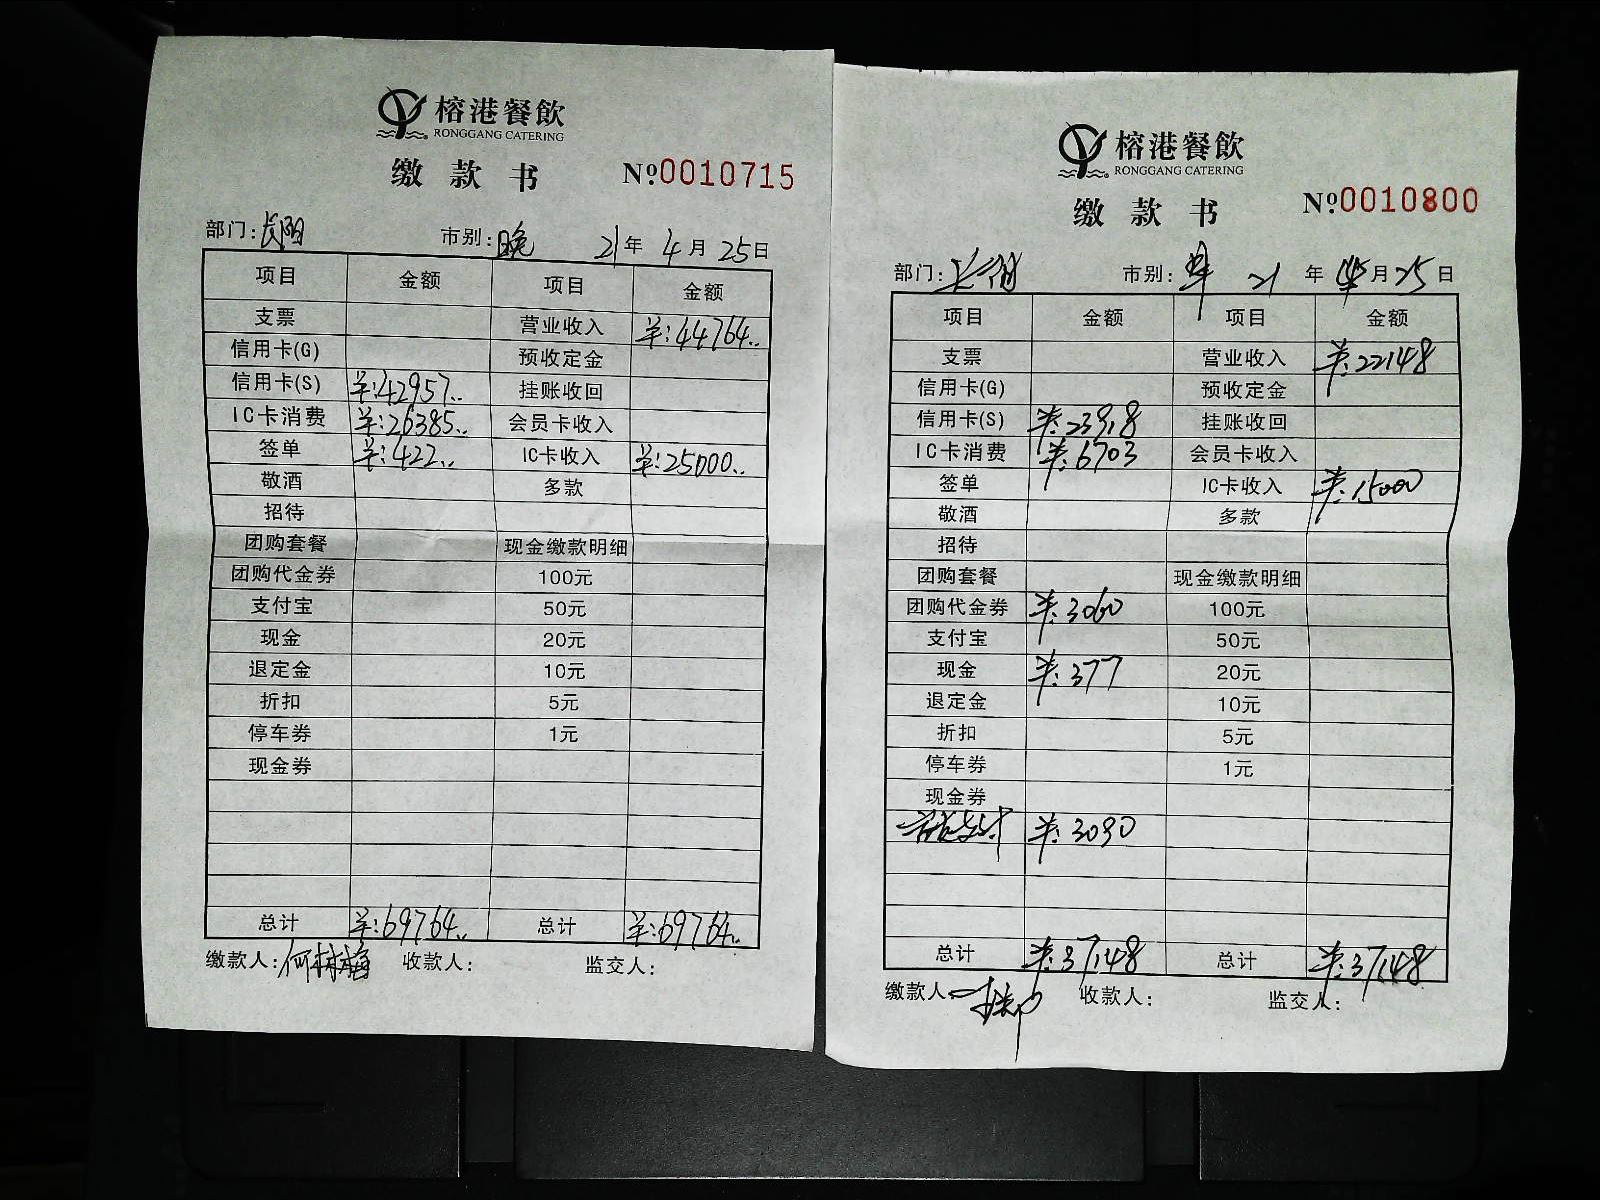 榕港餐飲
RONGGANG CATERING
缴款书 №0010715
部门:长阳 市别:晚 21年4月25日
项目 金额 项目 金额
支票 营业收入 ¥:44764..
信用卡(G) 预收定金
信用卡(S) ¥:42957.. 挂账收回
IC卡消费 ¥:26385.. 会员卡收入
签单 ¥:422.. IC卡收入 ¥:25000..
敬酒 多款
招待
团购套餐 现金缴款明细
团购代金券 100元
支付宝 50元
现金 20元
退定金 10元
折扣 5元
停车券 1元
现金券
总计 ¥:69764.. 总计 ¥:69764..
缴款人:何林梅 收款人: 监交人:
榕港餐飲
RONGGANG CATERING
缴款书 №0010800
部门: 市别: 21年 月25日
项目 金额 项目 金额
支票 营业收入 ¥:22148
信用卡(G) 预收定金
信用卡(S) ¥:23918 挂账收回
IC卡消费 ¥:6703 会员卡收入
签单 IC卡收入 ¥:15000
敬酒 多款
招待
团购套餐 现金缴款明细
团购代金券 ¥:3060 100元
支付宝 50元
现金 ¥:377 20元
退定金 10元
折扣 5元
停车券 1元
现金券
¥:3090
总计 ¥:37148 总计 ¥:37148
缴款人: 收款人: 监交人: